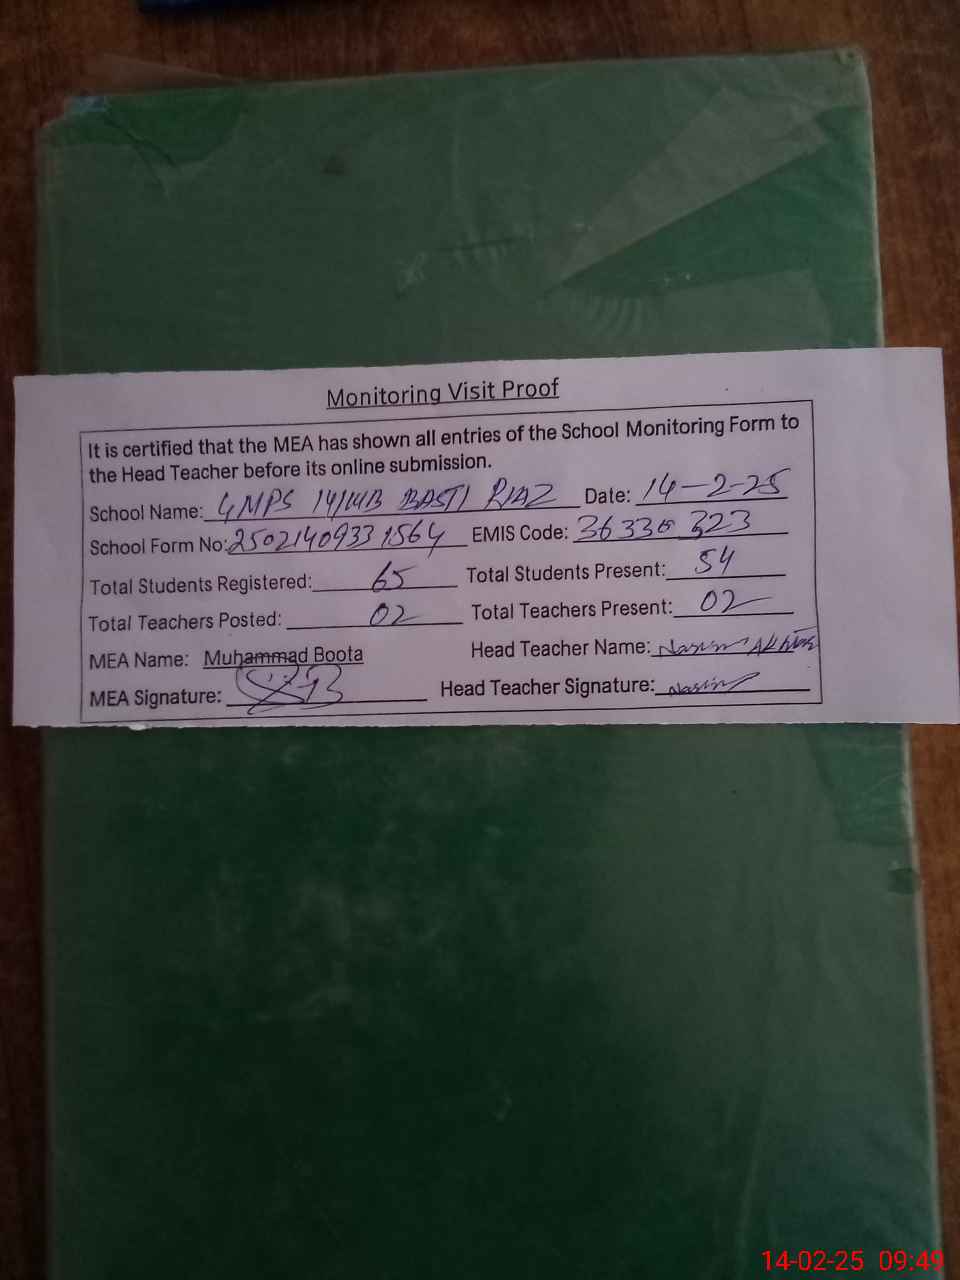 Monitoring Visit Proof
It is certified that the MEA has shown all entries of the School Monitoring Form to
the Head Teacher before its online submission.
School Name: GMPS 14/14B BASTI RIAZ Date: 14-2-25
School Form No: 25021409331564 EMIS Code: 36330323
Total Students Registered: 65 Total Students Present: 54
Total Teachers Posted: 02 Total Teachers Present: 02
MEA Name: Muhammad Boota Head Teacher Name: Nasim Akhtar
MEA Signature: Head Teacher Signature: Nasim
14-02-25 09:49